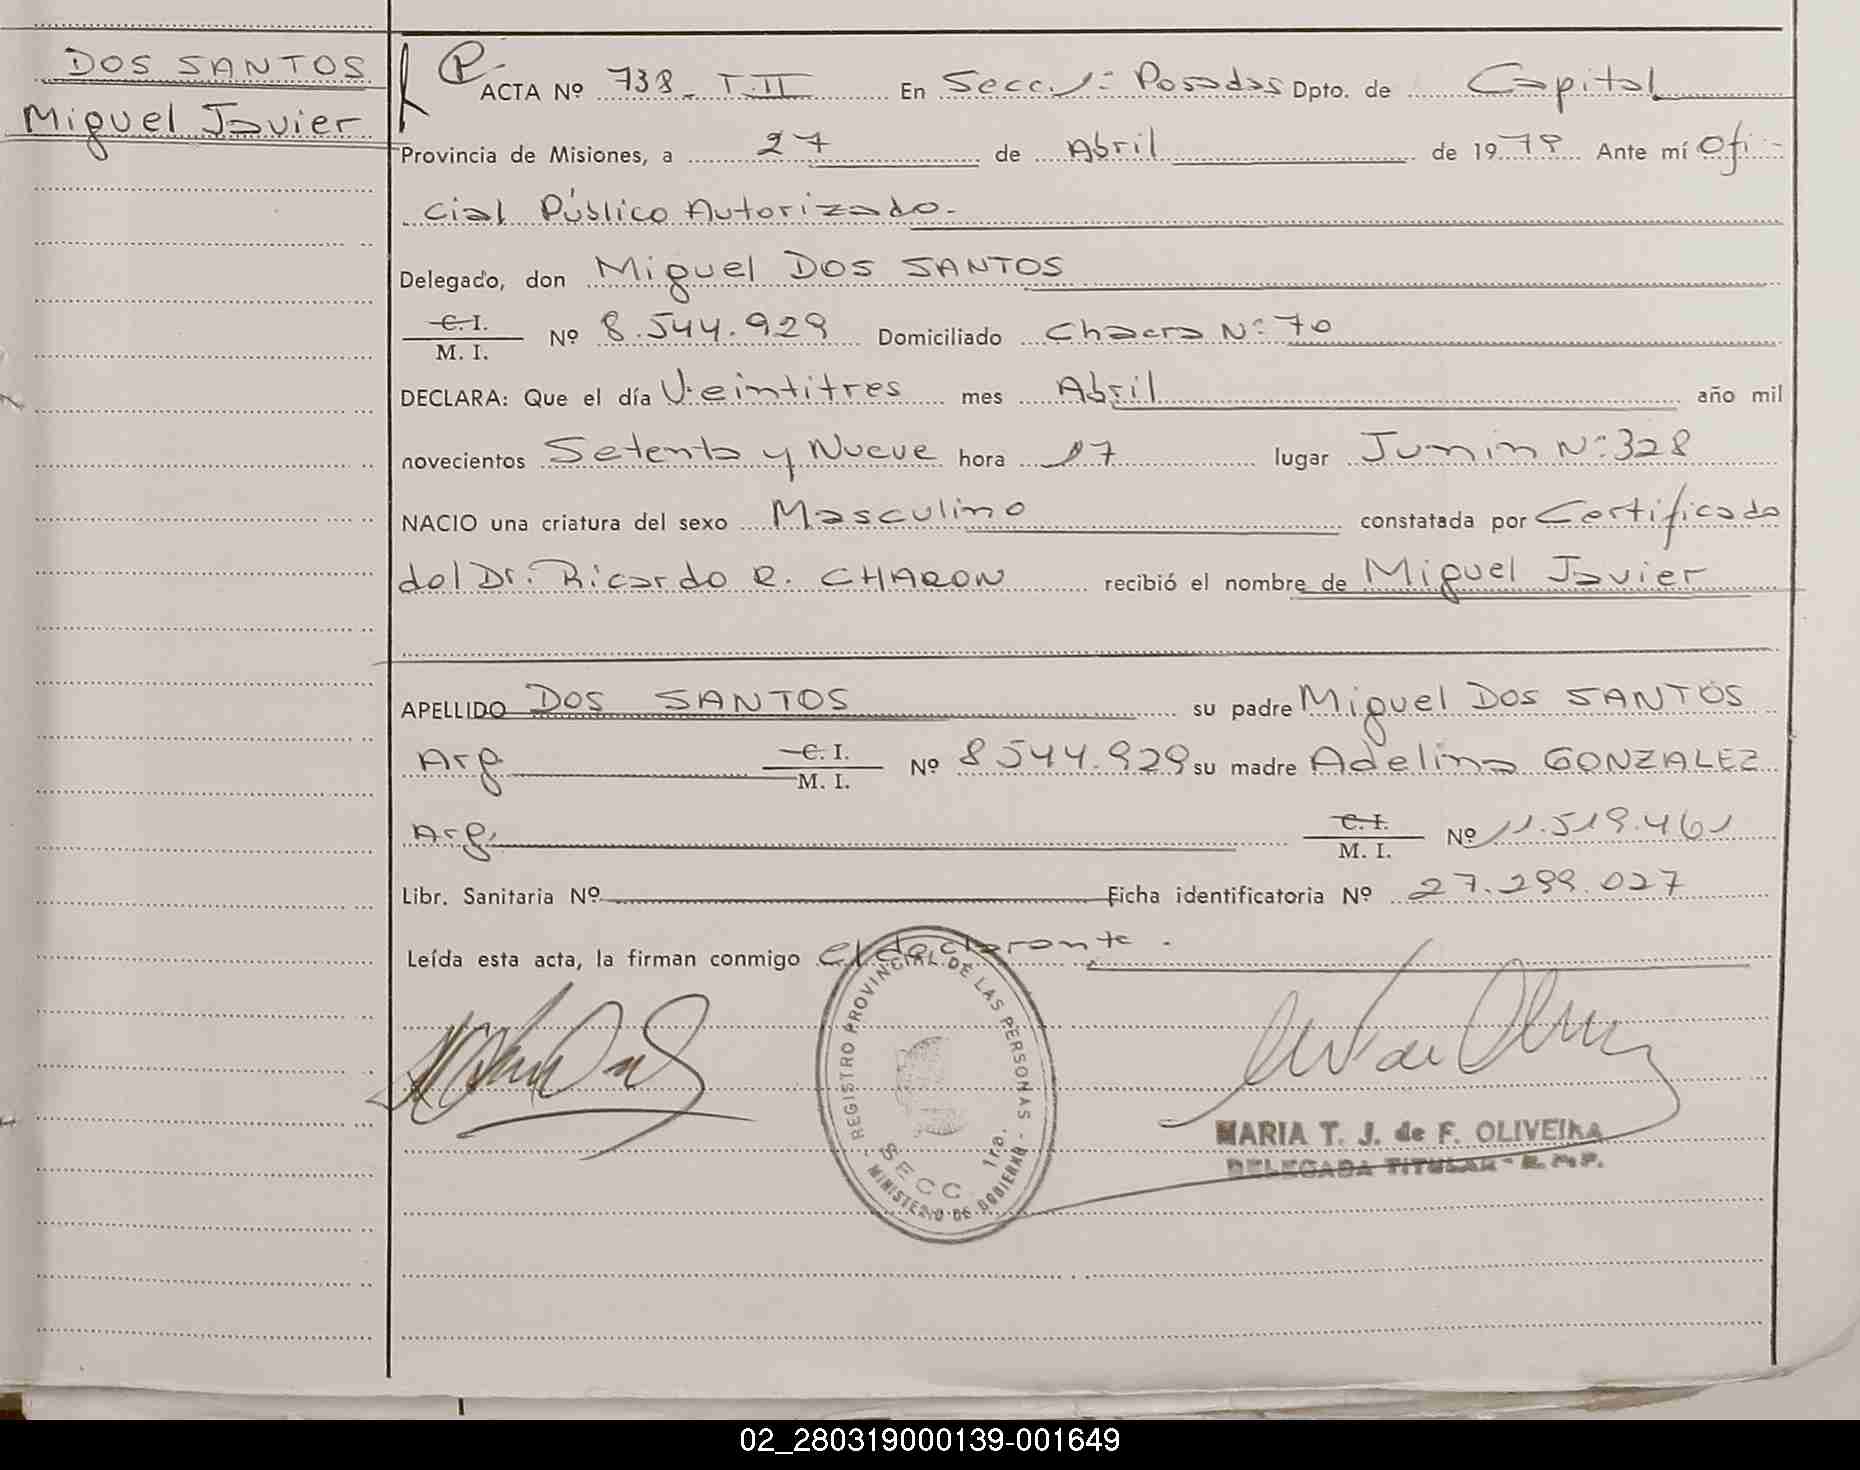 DOS SANTOS
Miguel Javier
P.
ACTA Nº 738_ T.II En Secc. 1: Posadas Dpto. de Capital
Provincia de Misiones, a 27 de Abril de 1979 Ante mí Ofi-
cial Público Autorizado.-
Delegado, don Miguel DOS SANTOS
C. I.
M. I. Nº 8.544.929 Domiciliado Chacra Nº: 70
DECLARA: Que el día Veintitres mes Abril año mil
novecientos Setenta y Nueve hora 17 lugar Junin Nº: 328
NACIO una criatura del sexo Masculino constatada por Certificado
del Dr. Ricardo R. CHARON recibió el nombre de Miguel Javier
APELLIDO DOS SANTOS su padre Miguel DOS SANTOS
Arg C. I.
M. I. Nº 8544.929 su madre Adelina GONZALEZ
Arg. C. I.
M. I. Nº 11.519.461
Libr. Sanitaria Nº Ficha identificatoria Nº 27.299.027
Leída esta acta, la firman conmigo el declarante.
REGISTRO PROVINCIAL DE LAS PERSONAS
SECC 1ra.
- MINISTERIO DE GOBIERNO -
MARIA T. J. de F. OLIVEIRA
DELEGADA TITULAR - R. M. P.
02_280319000139-001649